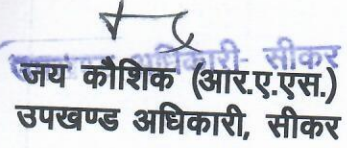 अधिकारी- सीकर
जय कौशिक (आर.ए.एस.)
उपखण्ड अधिकारी, सीकर